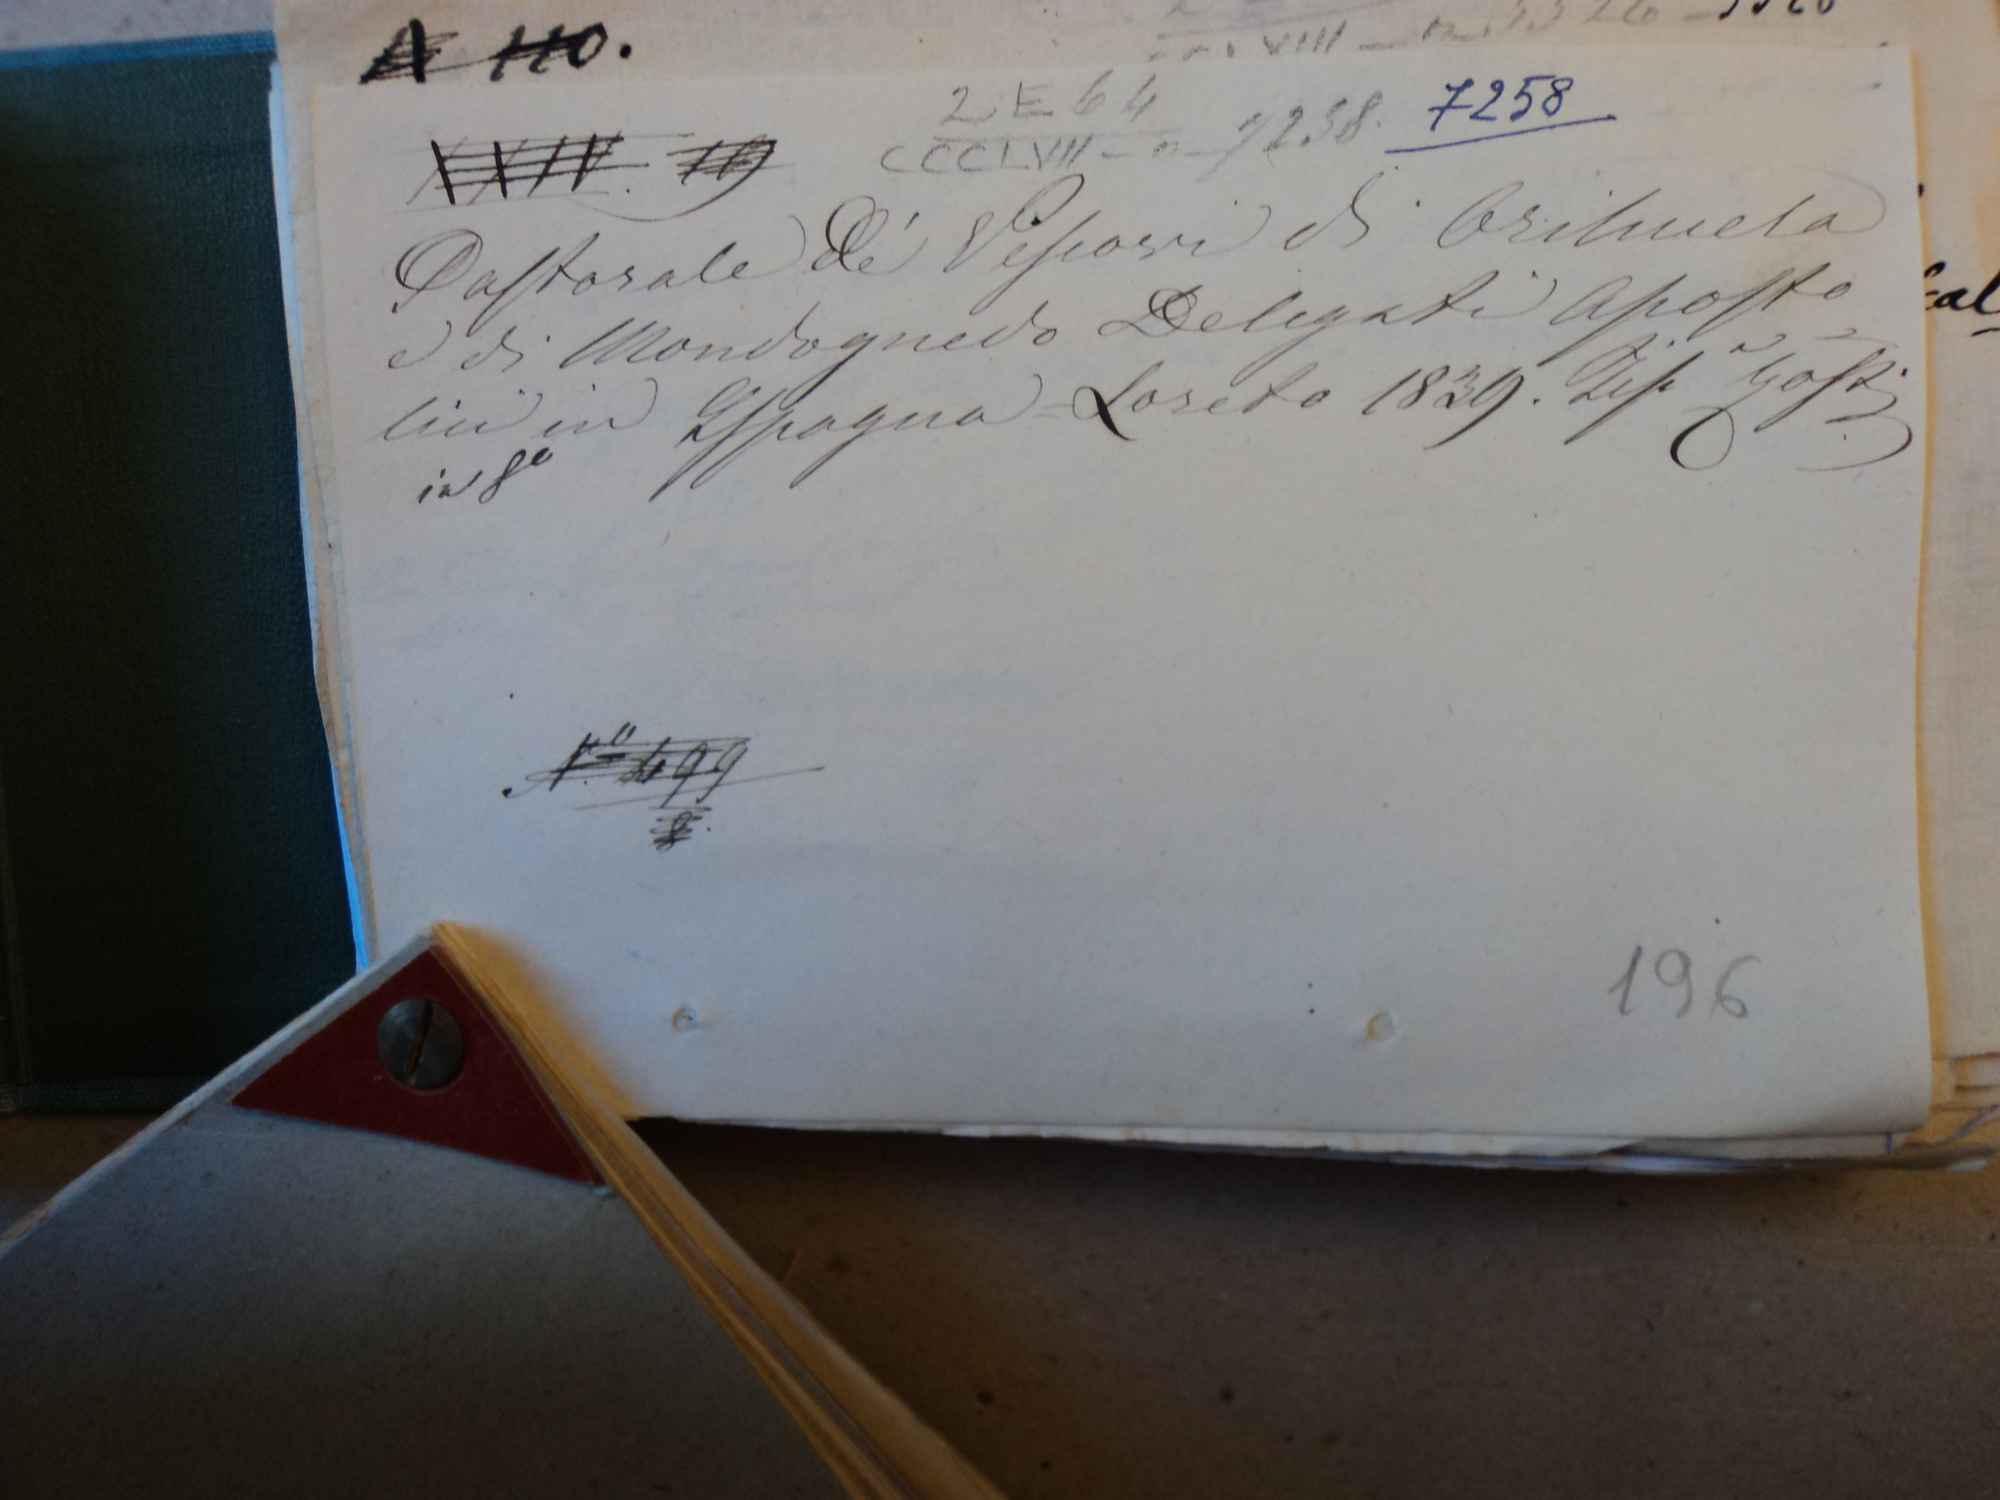 A 110.
2 E 64
7258
CCCLVII - n - 7258.
XXIV. 19
Pastorale De' Vescovi di Orihuela
e di Mondognedo Delegati Aposto
lici in Ispagna - Loreto 1839. Tip Rossi
in 8º
cal
Nº 499
8.
196